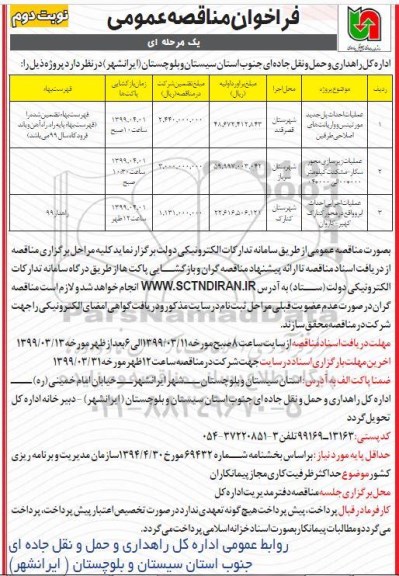 نوبت دوم
فراخوان مناقصه عمومی
یک مرحله ای
اداره کل راهداری و حمل و نقل جاده ای جنوب استان سیستان و بلوچستان (ایرانشهر) در نظر دارد پروژه ذیل را:
ردیف موضوع پروژه محل اجرا مبلغ برآورد اولیه (ریال) مبلغ تضمین شرکت در مناقصه (ریال) زمان بازگشایی پاکت ها فهرست بهاء
۱ عملیات احداث پل جدید شهرستان قصرقند ۴۸,۶۷۲,۴۱۲,۸۴۳ ۲,۴۴۰,۰۰۰,۰۰۰ ۱۳۹۹,۰۴,۰۱ ساعت ۱۰ صبح
۲ عملیات بهسازی محور شهرستان ۳,۰۰۰,۰۰۰,۰۰۰ ۱۳۹۹,۰۴,۰۱ ساعت ۱۰:۳۰ صبح
۳ عملیات اجرایی احداث شهرستان کنارک ۲۲,۶۱۶,۵۰۶,۱۲۱ ۱,۱۳۱,۰۰۰,۰۰۰ ۱۳۹۹,۰۴,۰۱ ساعت ۱۲ ظهر راهداری ۹۹
بصورت مناقصه عمومی از طریق سامانه تدارکات الکترونیکی دولت برگزار نماید کلیه مراحل برگزاری مناقصه
از دریافت اسناد مناقصه تا ارائه پیشنهاد مناقصه گران و بازگشایی پاکت ها از طریق درگاه سامانه تدارکات
الکترونیکی دولت (ستاد) به آدرس WWW.SCTNDIRAN.IR انجام خواهد شد و لازم است مناقصه
گران در صورت عدم عضویت قبلی مراحل ثبت نام در سایت مذکور و دریافت گواهی امضای الکترونیکی را جهت
شرکت در مناقصه محقق سازند.
مهلت دریافت اسناد مناقصه از سایت ساعت ۸ صبح مورخه ۱۳۹۹/۰۳/۱۱ الی ۶ بعد از ظهر مورخه ۱۳۹۹/۰۳/۱۳
آخرین مهلت بارگزاری اسناد در سایت جهت شرکت در مناقصه ساعت ۱۲ ظهر مورخه ۱۳۹۹/۰۳/۳۱
ضمنا پاکت الف به آدرس: استان سیستان و بلوچستان – شهر ایرانشهر – خیابان امام خمینی (ره) –
اداره کل راهداری و حمل و نقل جاده ای جنوب استان سیستان و بلوچستان (ایرانشهر) - دبیرخانه اداره کل
تحویل گردد
کد پستی: ۱۳۱۶۳–۹۹۱۶۹ تلفن ۳–۳۷۲۲۰۸۵۱–۰۵۴
حداقل پایه مورد نیاز: براساس بخشنامه شماره ۶۹۴۳۲ مورخ ۱۳۹۴/۴/۳۰ سازمان مدیریت و برنامه ریزی
کشور موضوع حداکثر ظرفیت کاری مجاز پیمانکاران
محل برگزاری جلسه مناقصه دفتر مدیریت اداره کل
کارفرما در قبال پرداخت، پیش پرداخت هیچ گونه تعهدی ندارد در صورت تخصیص اعتبار پیش پرداخت، پرداخت
می گردد و مطالبات پیمانکار بصورت اسناد خزانه اسلامی پرداخت می گردد.
روابط عمومی اداره کل راهداری و حمل و نقل جاده ای
جنوب استان سیستان و بلوچستان ( ایرانشهر)